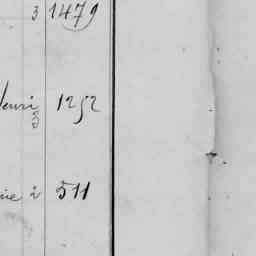 3 1479
Henri 2 1252
rie 2 511